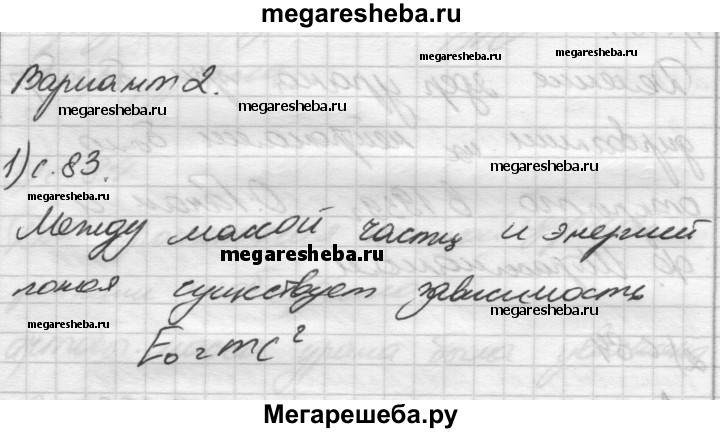 megaresheba.ru
Вариант 2.
megaresheba.ru
megaresheba.ru
megaresheba.ru
1) с. 83.
megaresheba.ru
megaresheba.ru
Между массой частиц и энергией
megaresheba.ru
покоя существует зависимость
megaresheba.ru
megaresheba.ru
E₀ = mc²
Мегарешеба.ру